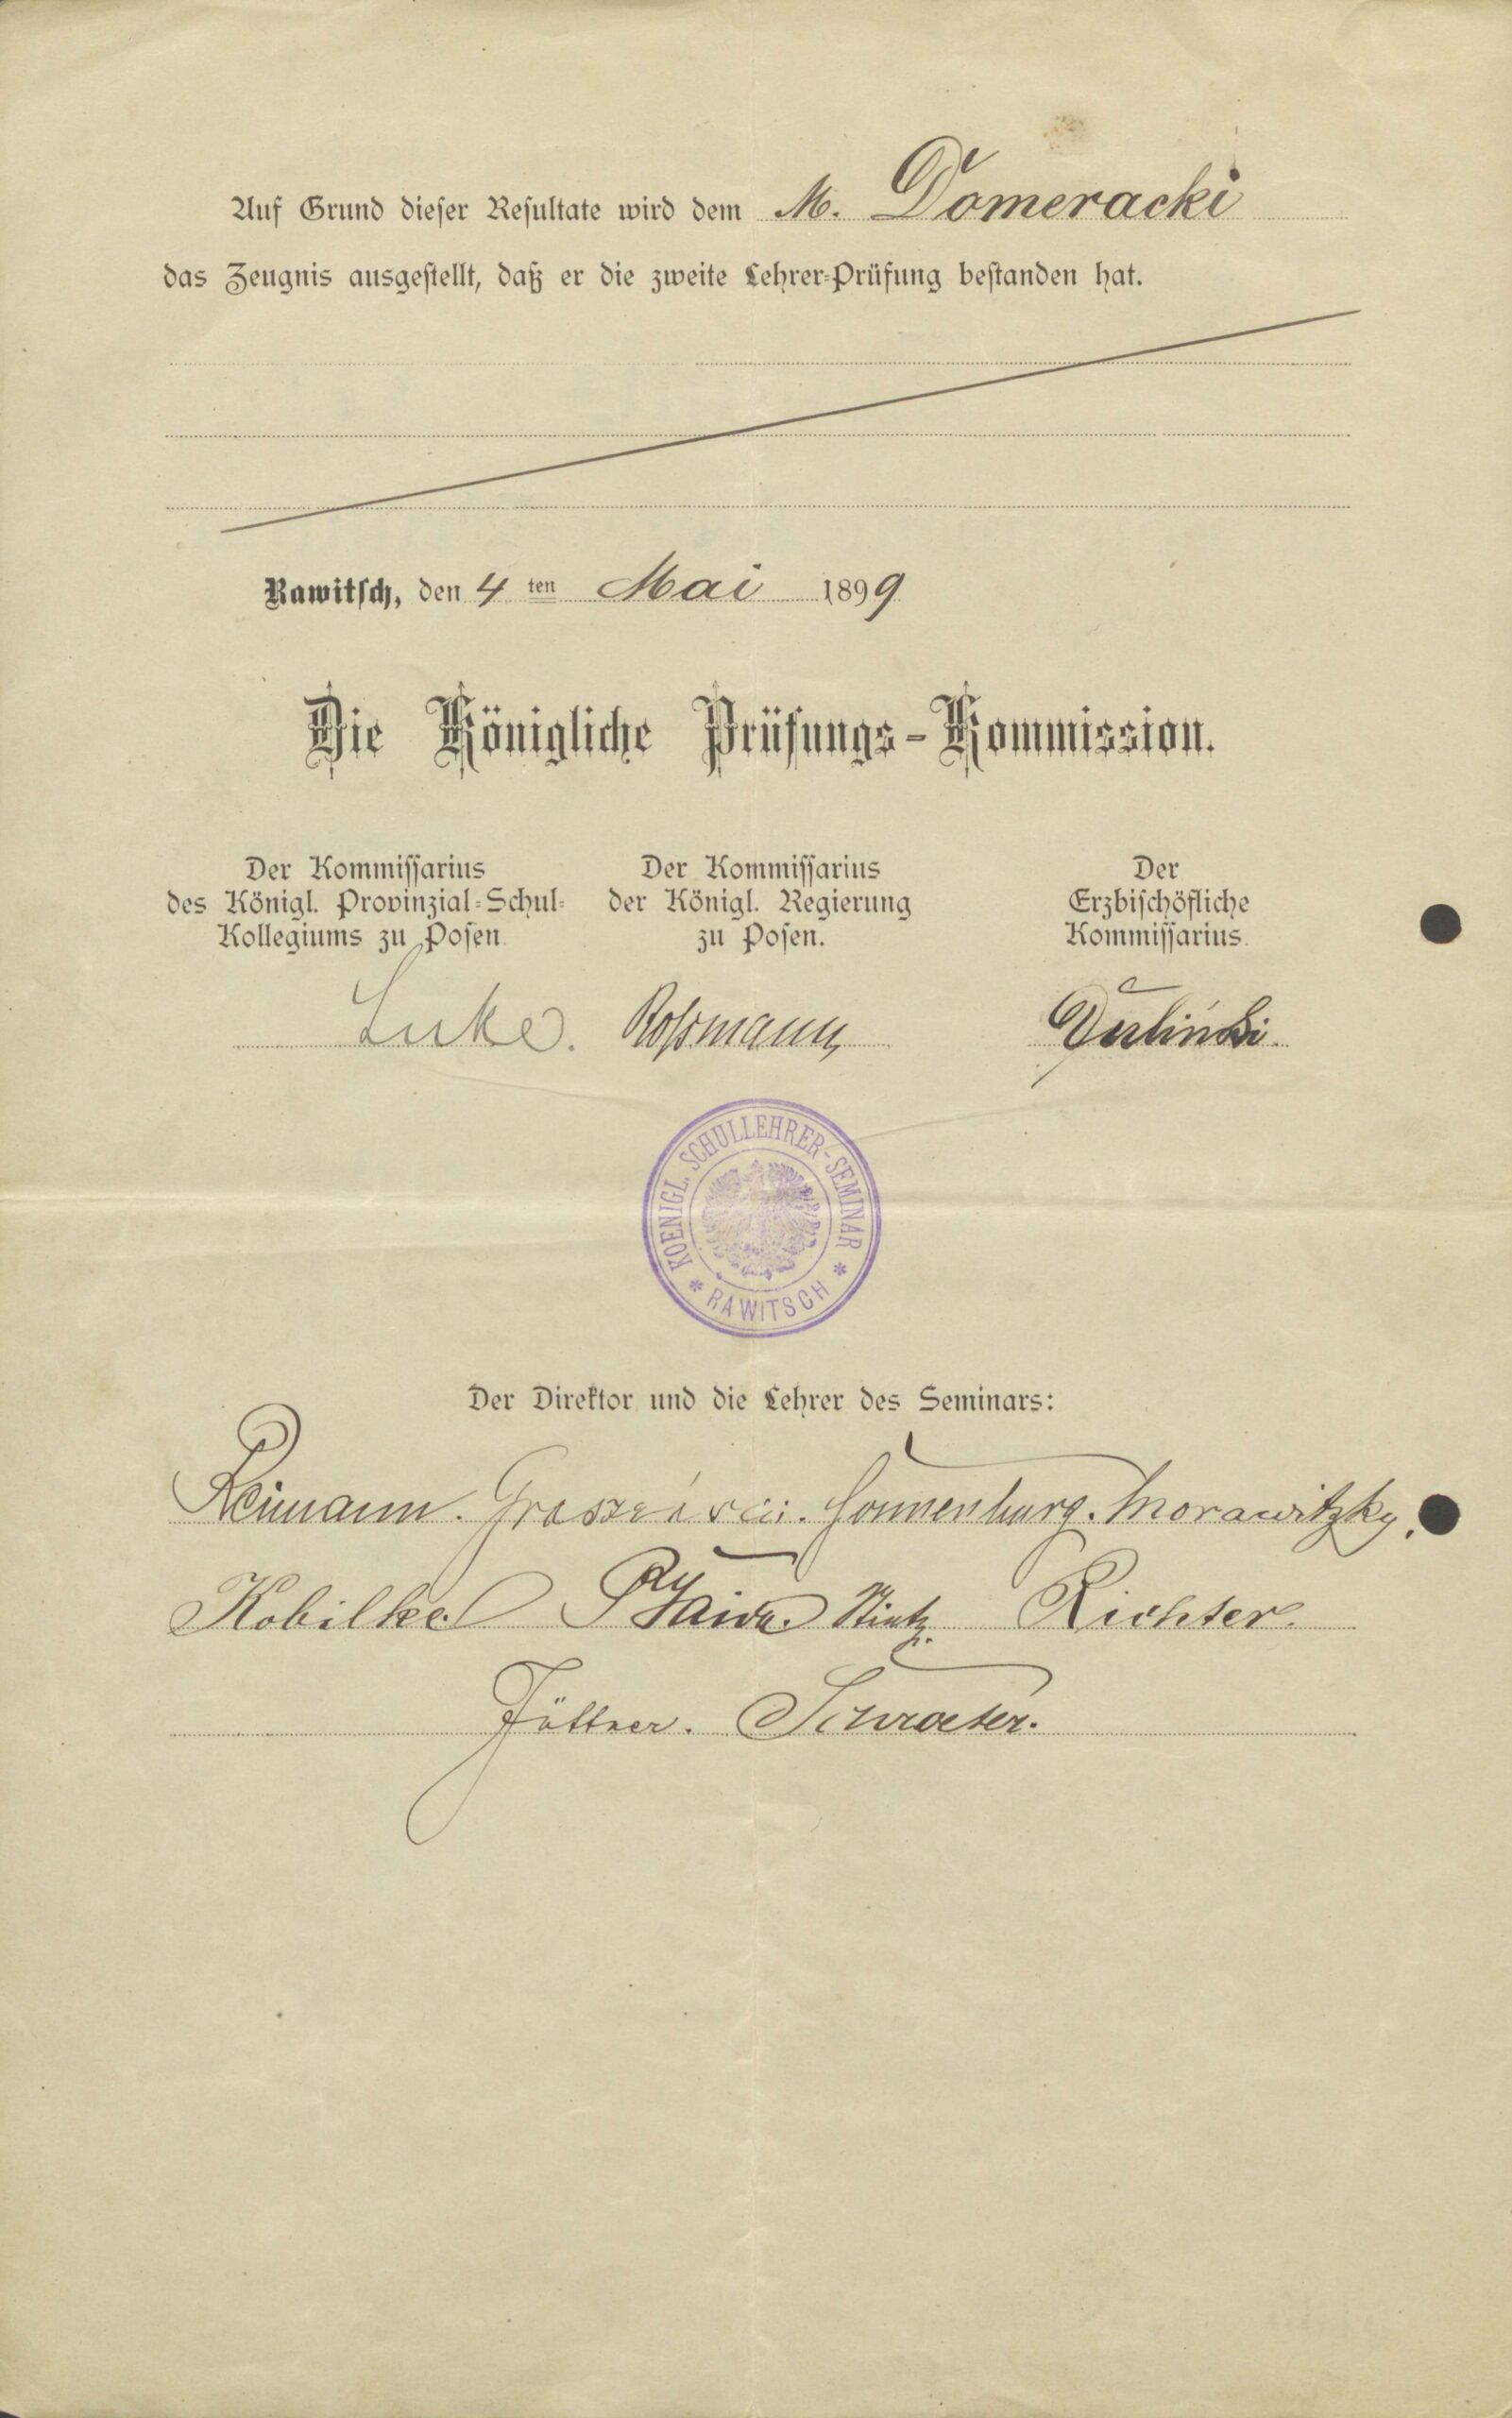 Auf Grund dieser Resultate wird dem M. Domeracki
das Zeugnis ausgestellt, daß er die zweite Lehrer-Prüfung bestanden hat.
Rawitsch, den 4 ten Mai 1899
Die Königliche Prüfungs-Kommission.
Der Kommissarius
des Königl. Provinzial-Schul-
Kollegiums zu Posen
Luke.
Der Kommissarius
der Königl. Regierung
zu Posen.
Roßmann
Der
Erzbischöfliche
Kommissarius
KOENIGL. SCHULLEHRER-SEMINAR
* RAWITSCH *
Der Direktor und die Lehrer des Seminars:
Reimann. Sonnenburg. Morawitzky.
Kobilke. Richter.
Jüttner. Schroeter.